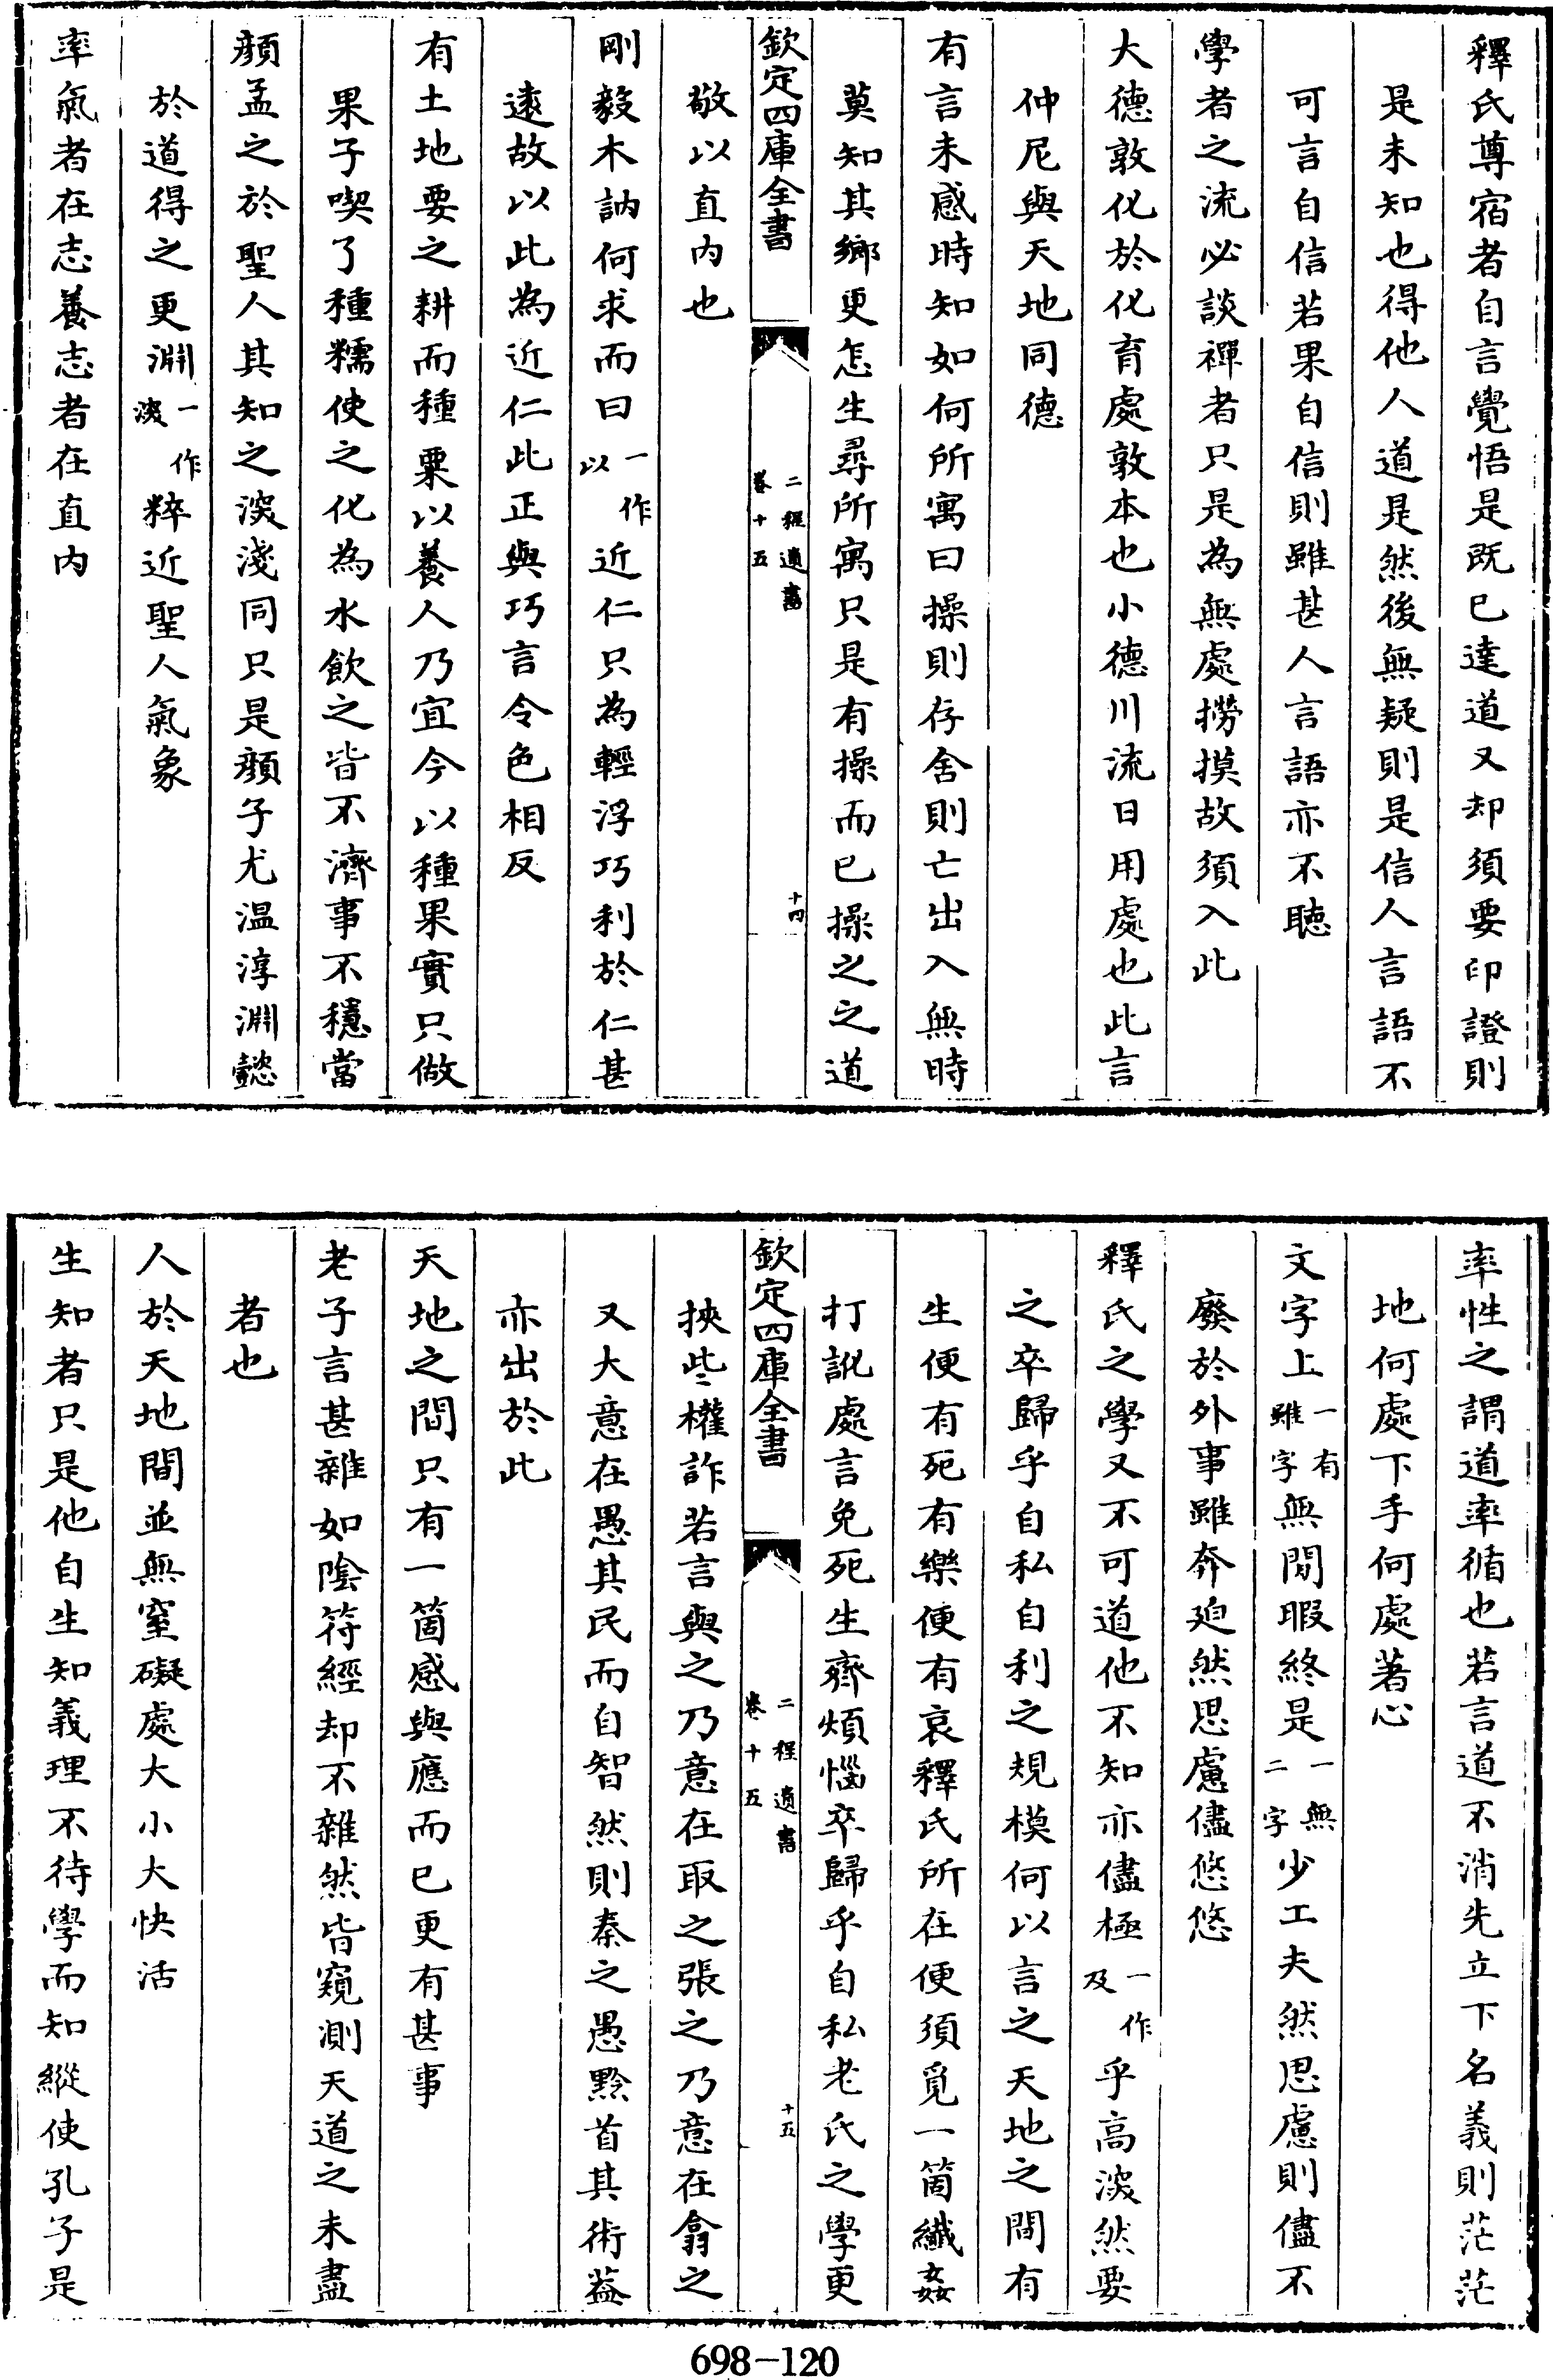 釋氏尊宿者自言覺悟是既已達道又却須要印證則
是未知也得他人道是然後無疑則是信人言語不
可言自信若果自信則雖甚人言語亦不聽
學者之流必談禪者只是為無處撈摸故須入此
大德敦化於化育處敦本也小德川流日用處也此言
仲尼與天地同德
有言未感時知如何所寓曰操則存舍則亡出入無時
莫知其鄉更怎生尋所寓只是有操而已操之之道
欽定四庫全書 二程遺書 卷十五 十四
敬以直内也
剛毅木訥何求而曰一作以近仁只為輕浮巧利於仁甚
遠故以此為近仁此正與巧言令色相反
有土地要之耕而種粟以養人乃宜今以種果實只做
果子喫了種糯使之化為水飲之皆不濟事不穩當
顔孟之於聖人其知之深淺同只是顔子尤温淳淵懿
於道得之更淵一作深粹近聖人氣象
率氣者在志養志者在直内
率性之謂道率循也若言道不消先立下名義則茫茫
地何處下手何處著心
文字上一有雖字無閒暇終是一無二字少工夫然思慮則儘不
廢於外事雖奔迫然思慮儘悠悠
釋氏之學又不可道他不知亦儘極一作及乎高深然要
之卒歸乎自私自利之規模何以言之天地之間有
生便有死有樂便有哀釋氏所在便須覓一箇纎姦
打訛處言免死生齊煩惱卒歸乎自私老氏之學更
欽定四庫全書 二程遺書 卷十五 十五
挾些權詐若言與之乃意在取之張之乃意在翕之
又大意在愚其民而自智然則秦之愚黔首其術蓋
亦出於此
天地之間只有一箇感與應而已更有甚事
老子言甚雜如陰符經却不雜然皆窺測天道之未盡
者也
人於天地間並無窒礙處大小大快活
生知者只是他自生知義理不待學而知縱使孔子是
698-120